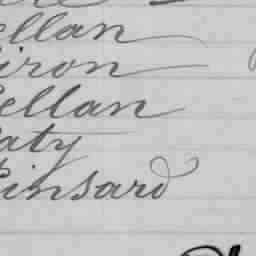 ellan
iron
ellan
aty
insard